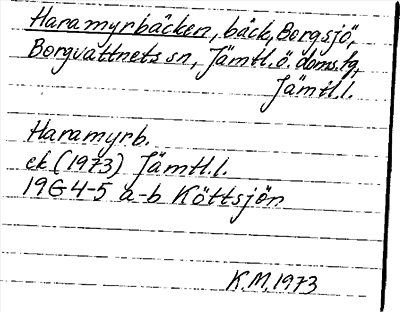 Haramyrbäcken, bäck, Borgsjö,
Borgvattnets sn, Jämtl.ö. doms.fg,
Jämtl.l.
Haramyrb.
ek (1973) Jämtl.l.
19G 4-5 a-b Köttsjön
K.M. 1973